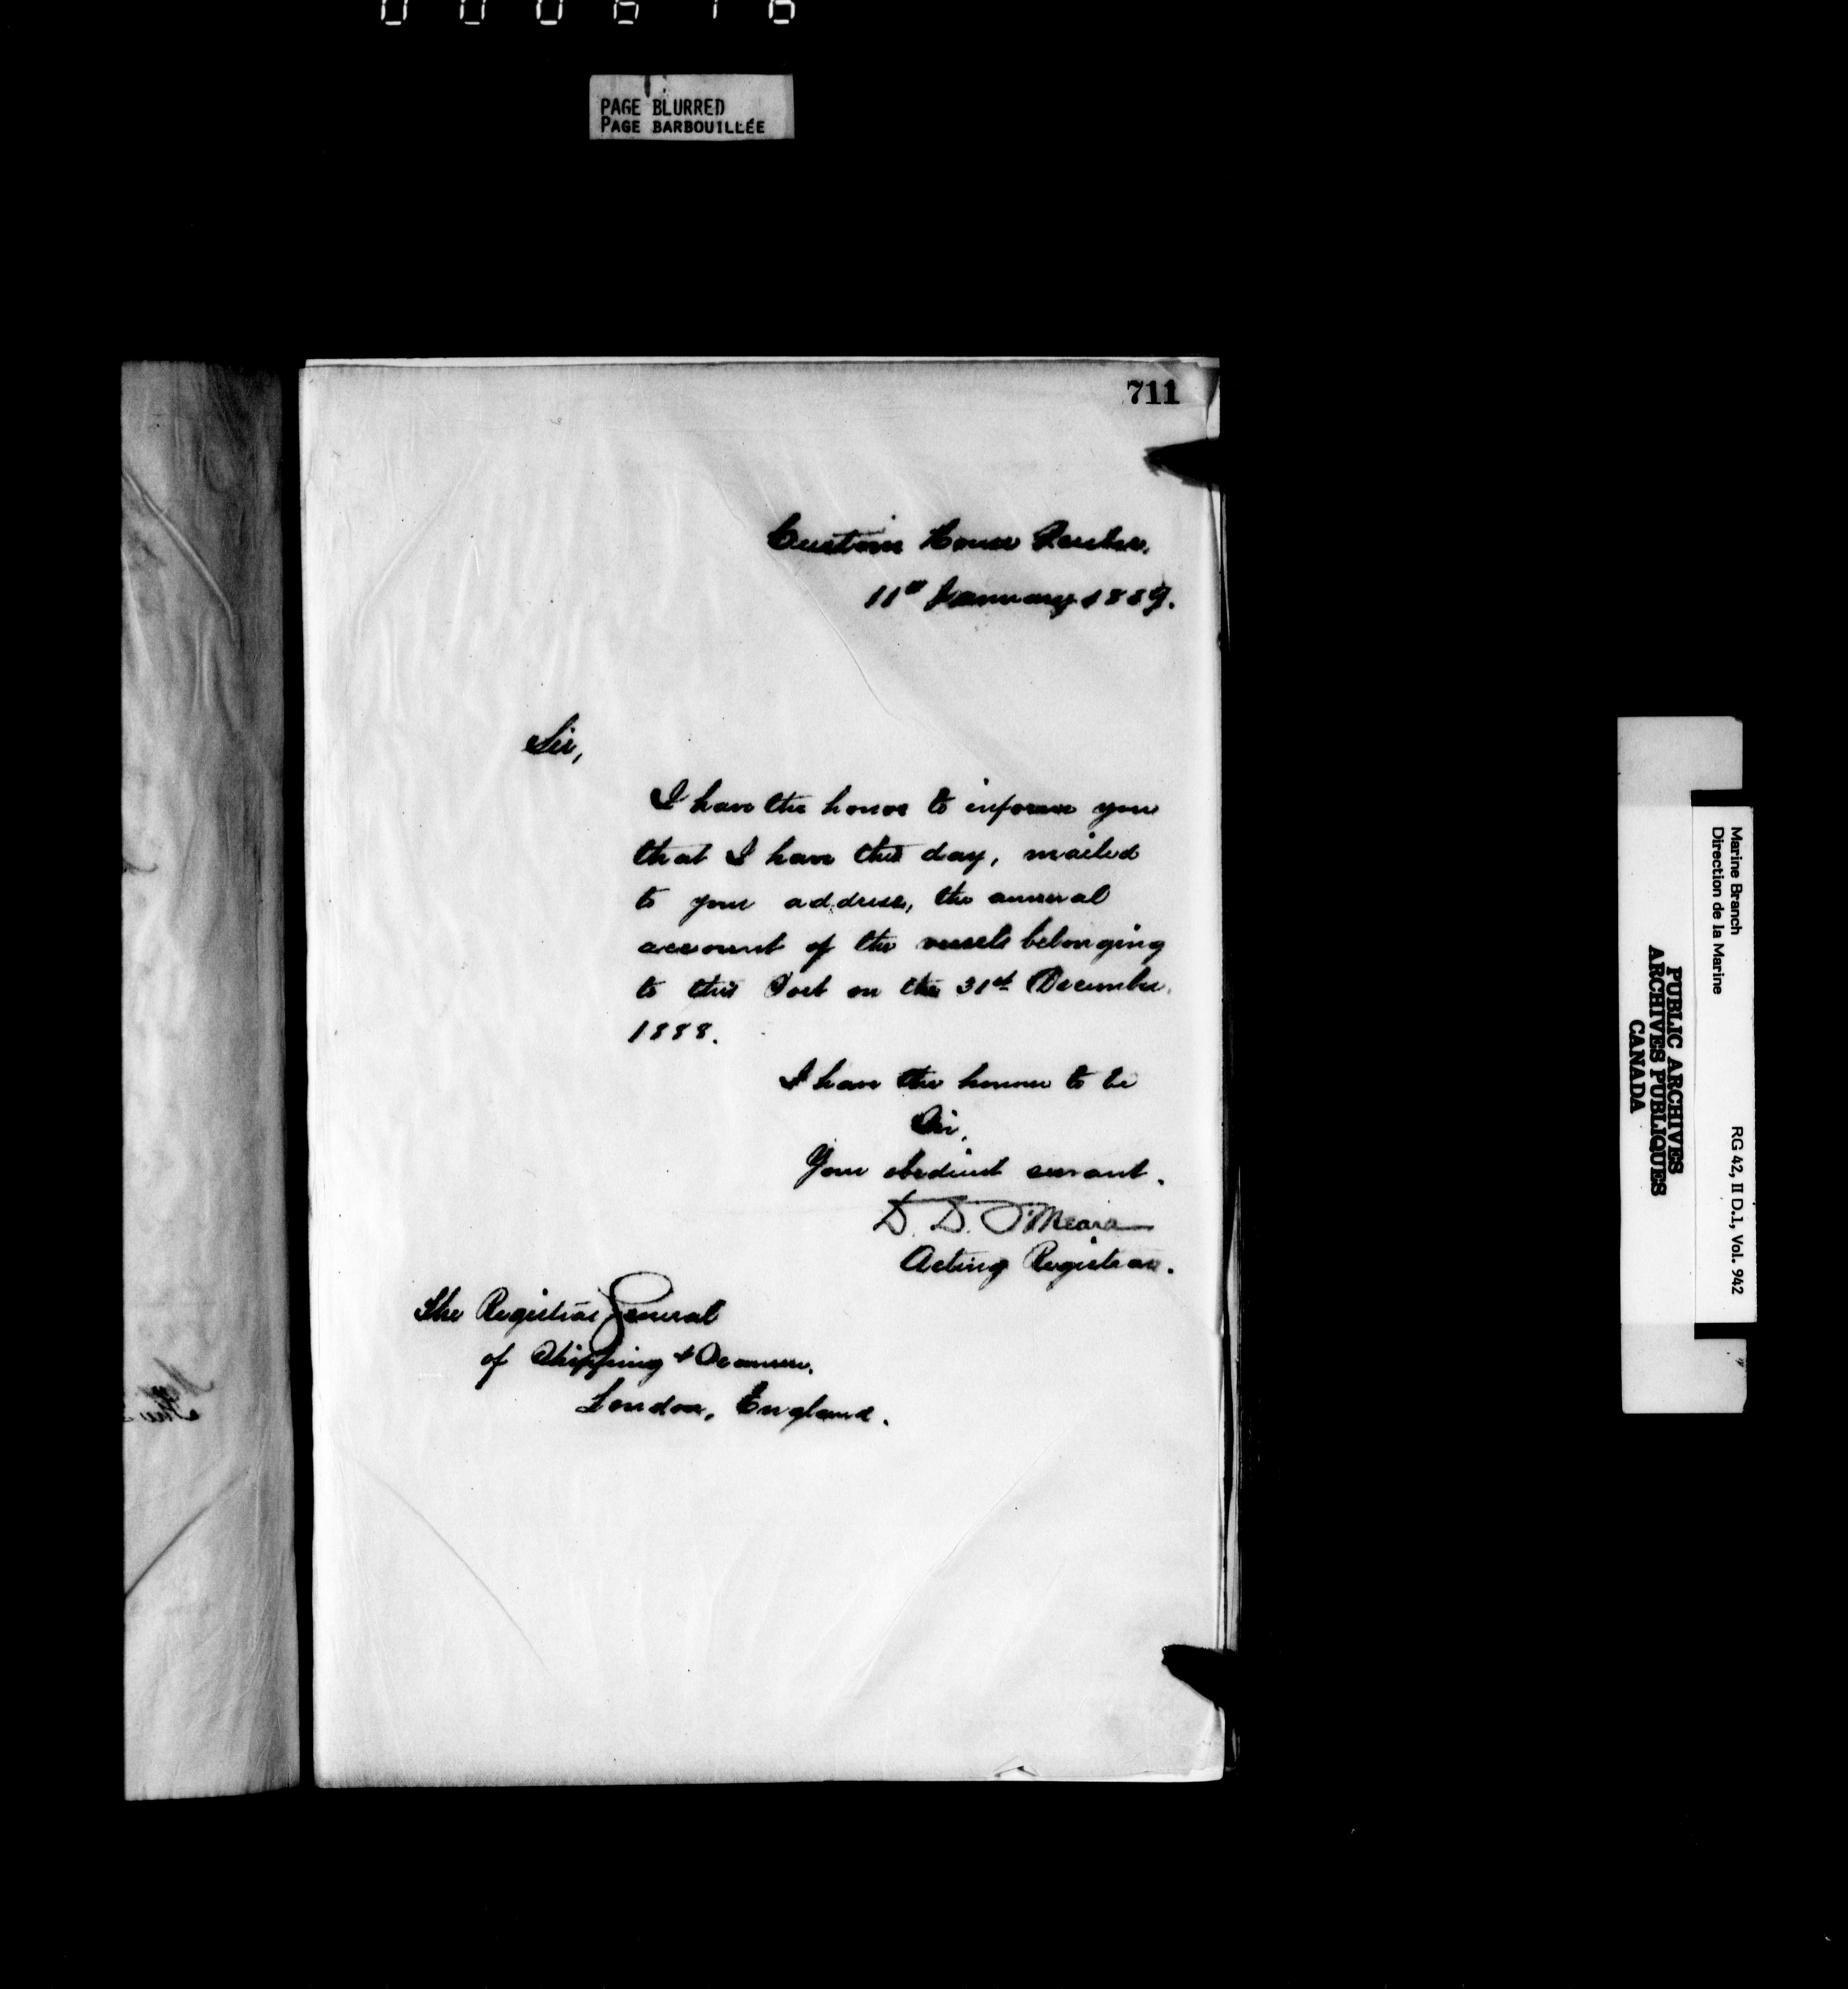 PAGE BLURRED
PAGE BARBOUILLÉE
711
Custom House Quebec,
11th January 1889.
Sir,
I have the honor to inform you
that I have this day, mailed
to your address, the annual
account of the vessels belonging
to this Port on the 31st December,
1888.
I have the honour to be
Sir,
Your obedient servant.
D. D. O'Meara
Acting Registrar.
The Registrar General
of Shipping & Seamen,
London, England.
Marine Branch
Direction de la Marine
RG 42, II D.1, Vol. 942
PUBLIC ARCHIVES
ARCHIVES PUBLIQUES
CANADA